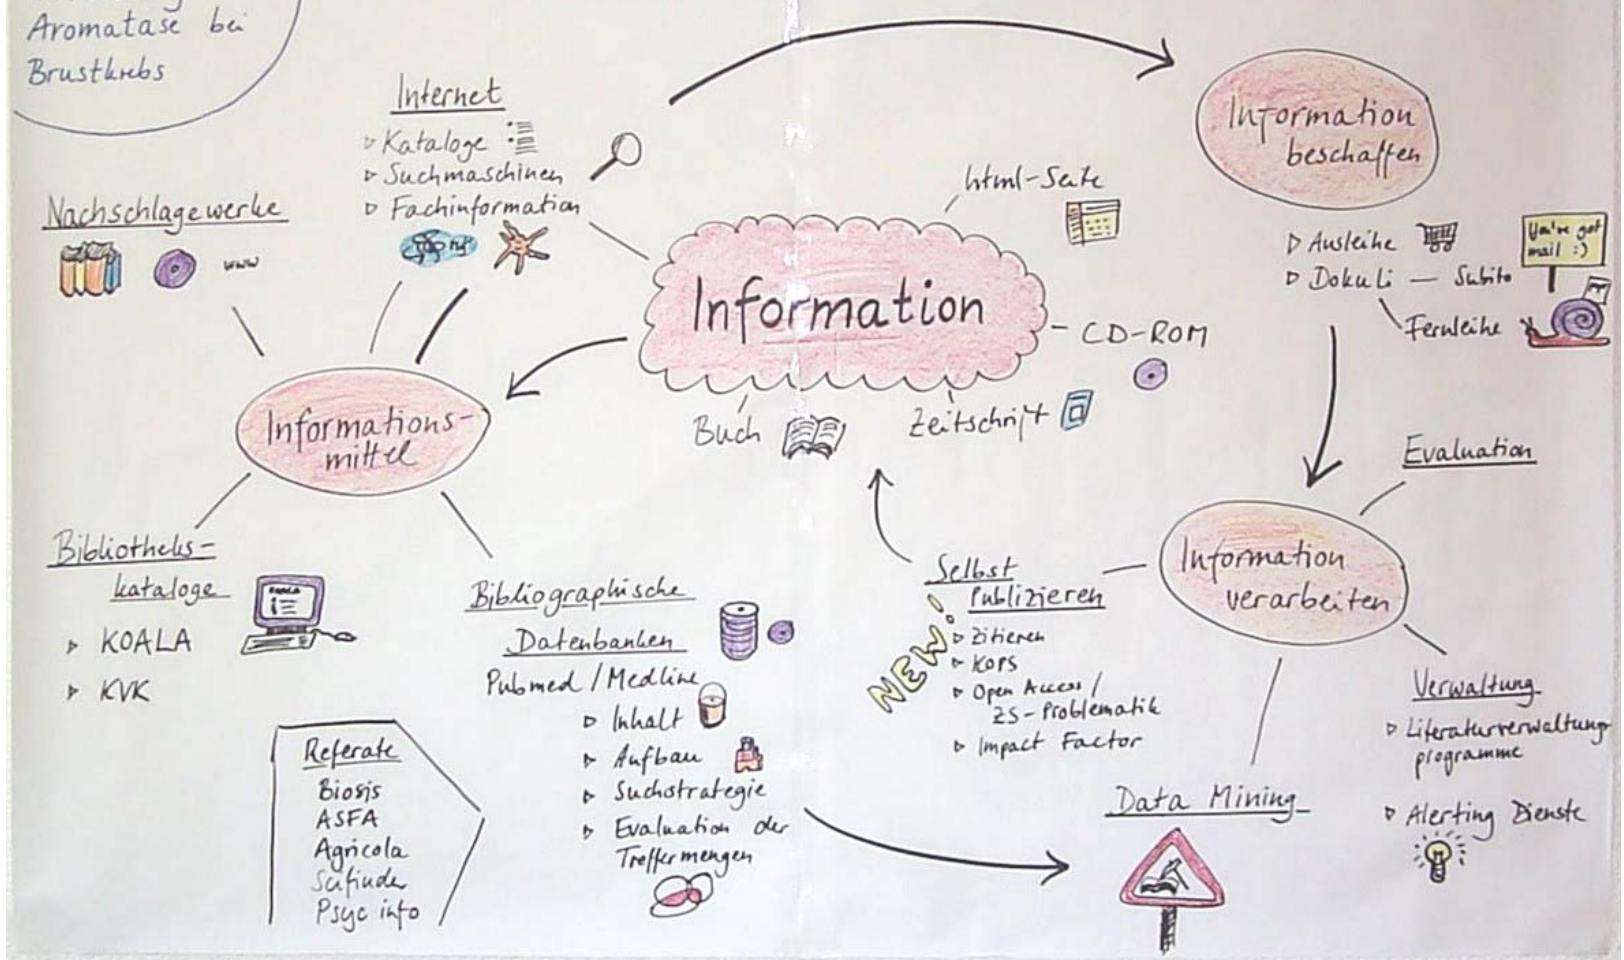 Aromatase bei
Brustkrebs
Internet
Kataloge
Suchmaschinen
Fachinformation
Nachschlagewerke
www
Information
html-Seite
CD-ROM
Zeitschrift
Buch
Information
beschaffen
Ausleihe
Dokuli — Subito
Fernleihe
You've got
mail :)
Informations-
mittel
Bibliotheks-
kataloge
KOALA
KVK
Bibliographische
Datenbanken
Pubmed / Medline
Inhalt
Aufbau
Suchstrategie
Evaluation der
Treffermengen
Referate
Biosis
ASFA
Agricola
Scifinder
Psyc info
Evaluation
Information
verarbeiten
Selbst
Publizieren
NEW!
Zitieren
KOPS
Open Access /
ZS-Problematik
Impact Factor
Data Mining
Verwaltung
Literaturverwaltungs
programme
Alerting Dienste